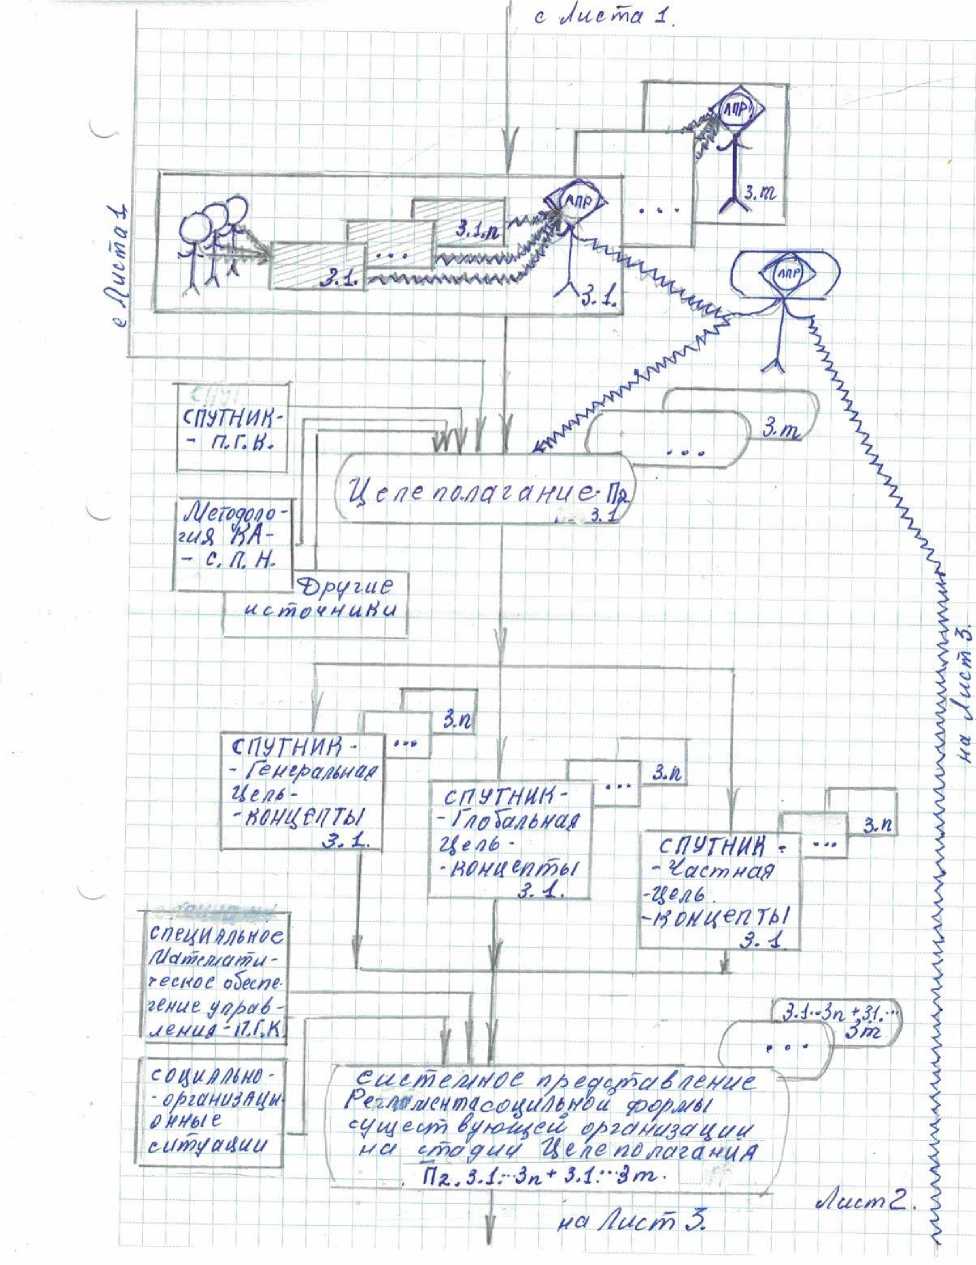 с Листа 1.
ЛПР
3.m
...
ЛПР
3.1.n
...
3.1.
3.1.
ЛПР
с Листа 1
СПУТНИК-
- П.Г.К.
3.m
...
Целеполагание-П2
3.1
Методоло-
гия КА-
- С.П.Н.
Другие
источники
на Лист 3.
3.n
...
СПУТНИК-
- Генеральная
Цель-
-КОНЦЕПТЫ
3.1.
3.n
...
СПУТНИК-
- Глобальная
Цель-
-КОНЦЕПТЫ
3.1.
3.n
...
СПУТНИК-
-Частная
-Цель.
-КОНЦЕПТЫ
3.1
СПЕЦИАЛЬНОЕ
Математи-
ческое обеспе-
чение управ-
ления-П.Г.К.
3.1...3n+3.1...
3m
...
СОЦИАЛЬНО-
-организаци
онные
ситуации
системное представление
Регламентасоцильной формы
существующей организации
на стадии Целеполагания
П2.3.1...3n+3.1...3m.
Лист 2.
на Лист 3.